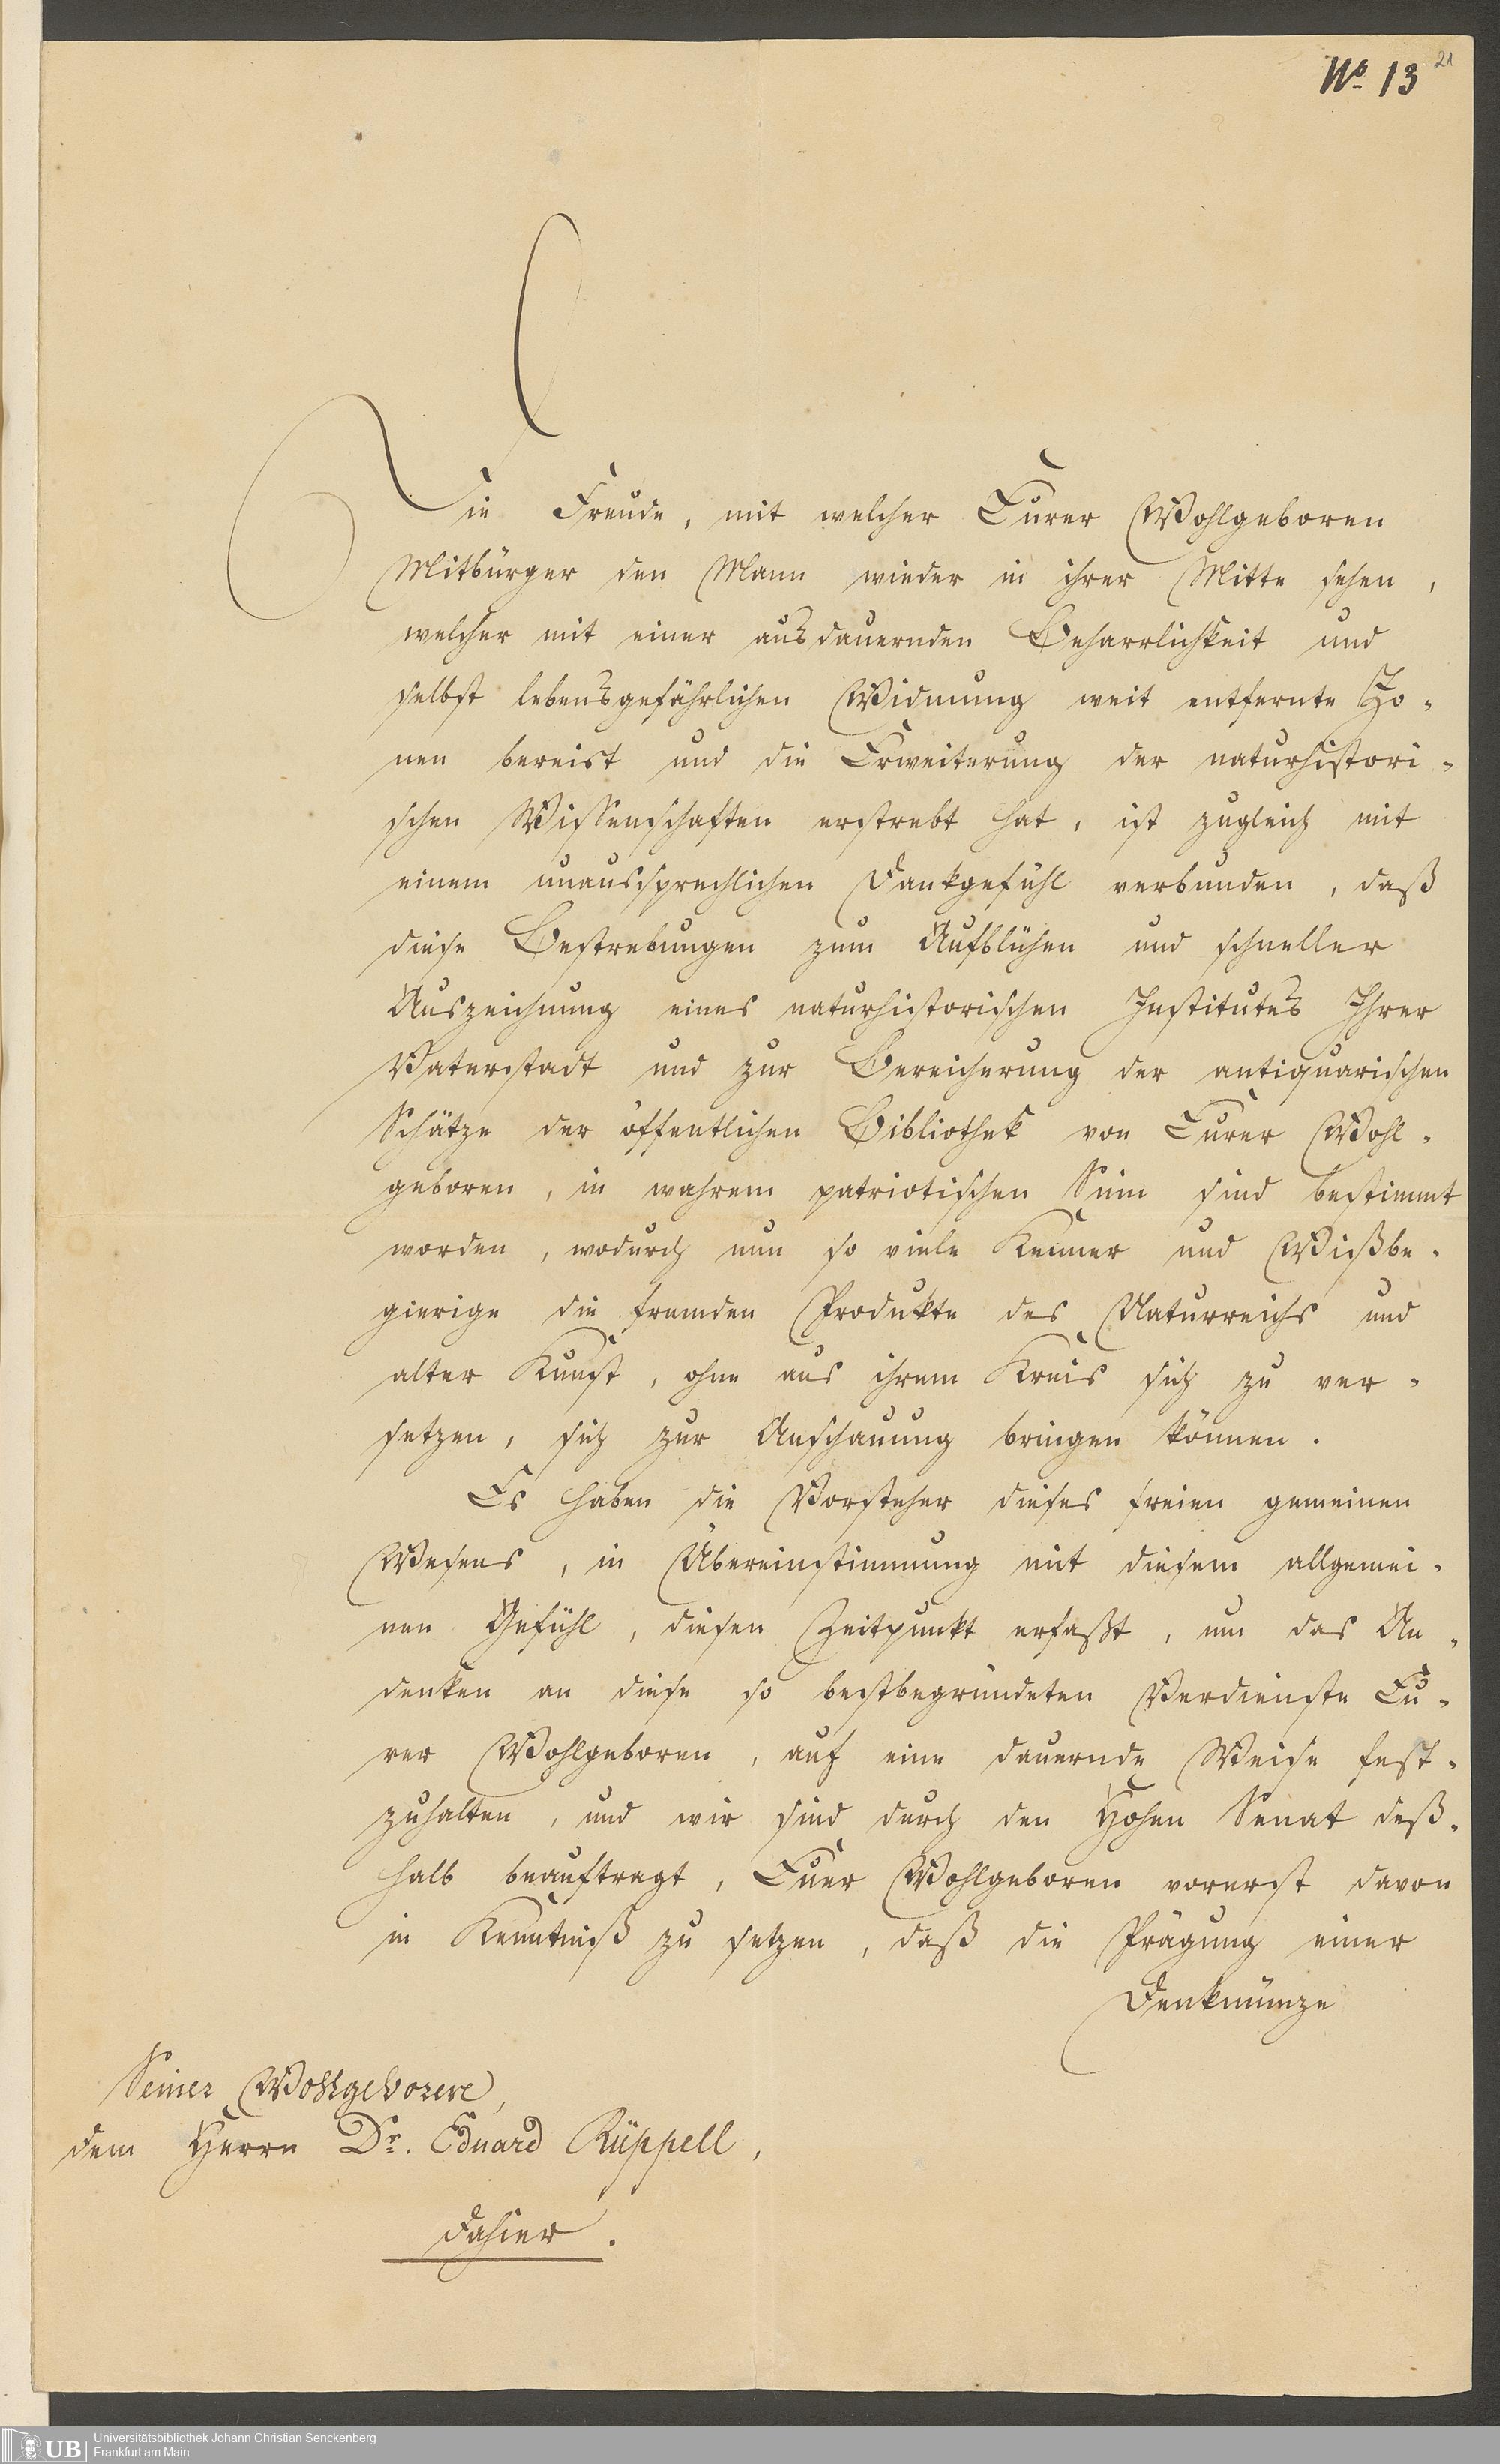 No 13
21
Die Freude, mit welcher Eurer Wohlgeboren
Mitbürger den Mann wieder in ihrer Mitte sehen,
welcher mit einer ausdauernden Beharrlichkeit und
selbst lebensgefährlichen Widmung weit entfernte Zo-
nen bereist und die Erweiterung der naturhistori-
schen Wissenschaften erstrebt hat, ist zugleich mit
einem unaussprechlichen Dankgefühl verbunden, daß
diese Bestrebungen zum Aufblühen und schneller
Auszeichnung eines naturhistorischen Institutes Ihrer
Vaterstadt und zur Bereicherung der antiquarischen
Schätze der öffentlichen Bibliothek von Eurer Wohl-
geboren, in wahrem patriotischen Sinn sind bestimmt
worden, wodurch nun so viele Kenner und Wißbe-
gierige die fremden Produkte des Naturreichs und
alter Kunst, ohne aus ihrem Kreis sich zu ver-
setzen, sich zur Anschauung bringen können.
Es haben die Vorsteher dieses freien gemeinen
Wesens, in Übereinstimmung mit diesem allgemei-
nen Gefühl, diesen Zeitpunkt erfaßt, um das An-
denken an diese so bestbegründeten Verdienste Eu-
rer Wohlgeboren, auf eine dauernde Weise fest-
zuhalten, und wir sind durch den Hohen Senat deß-
halb beauftragt, Euer Wohlgeboren vorerst davon
in Kenntniß zu setzen, daß die Prägung einer
Denkmünze
Seiner Wohlgeboren,
dem Herrn Dr. Eduard Rüppell,
dahier.
UB
Universitätsbibliothek Johann Christian Senckenberg
Frankfurt am Main